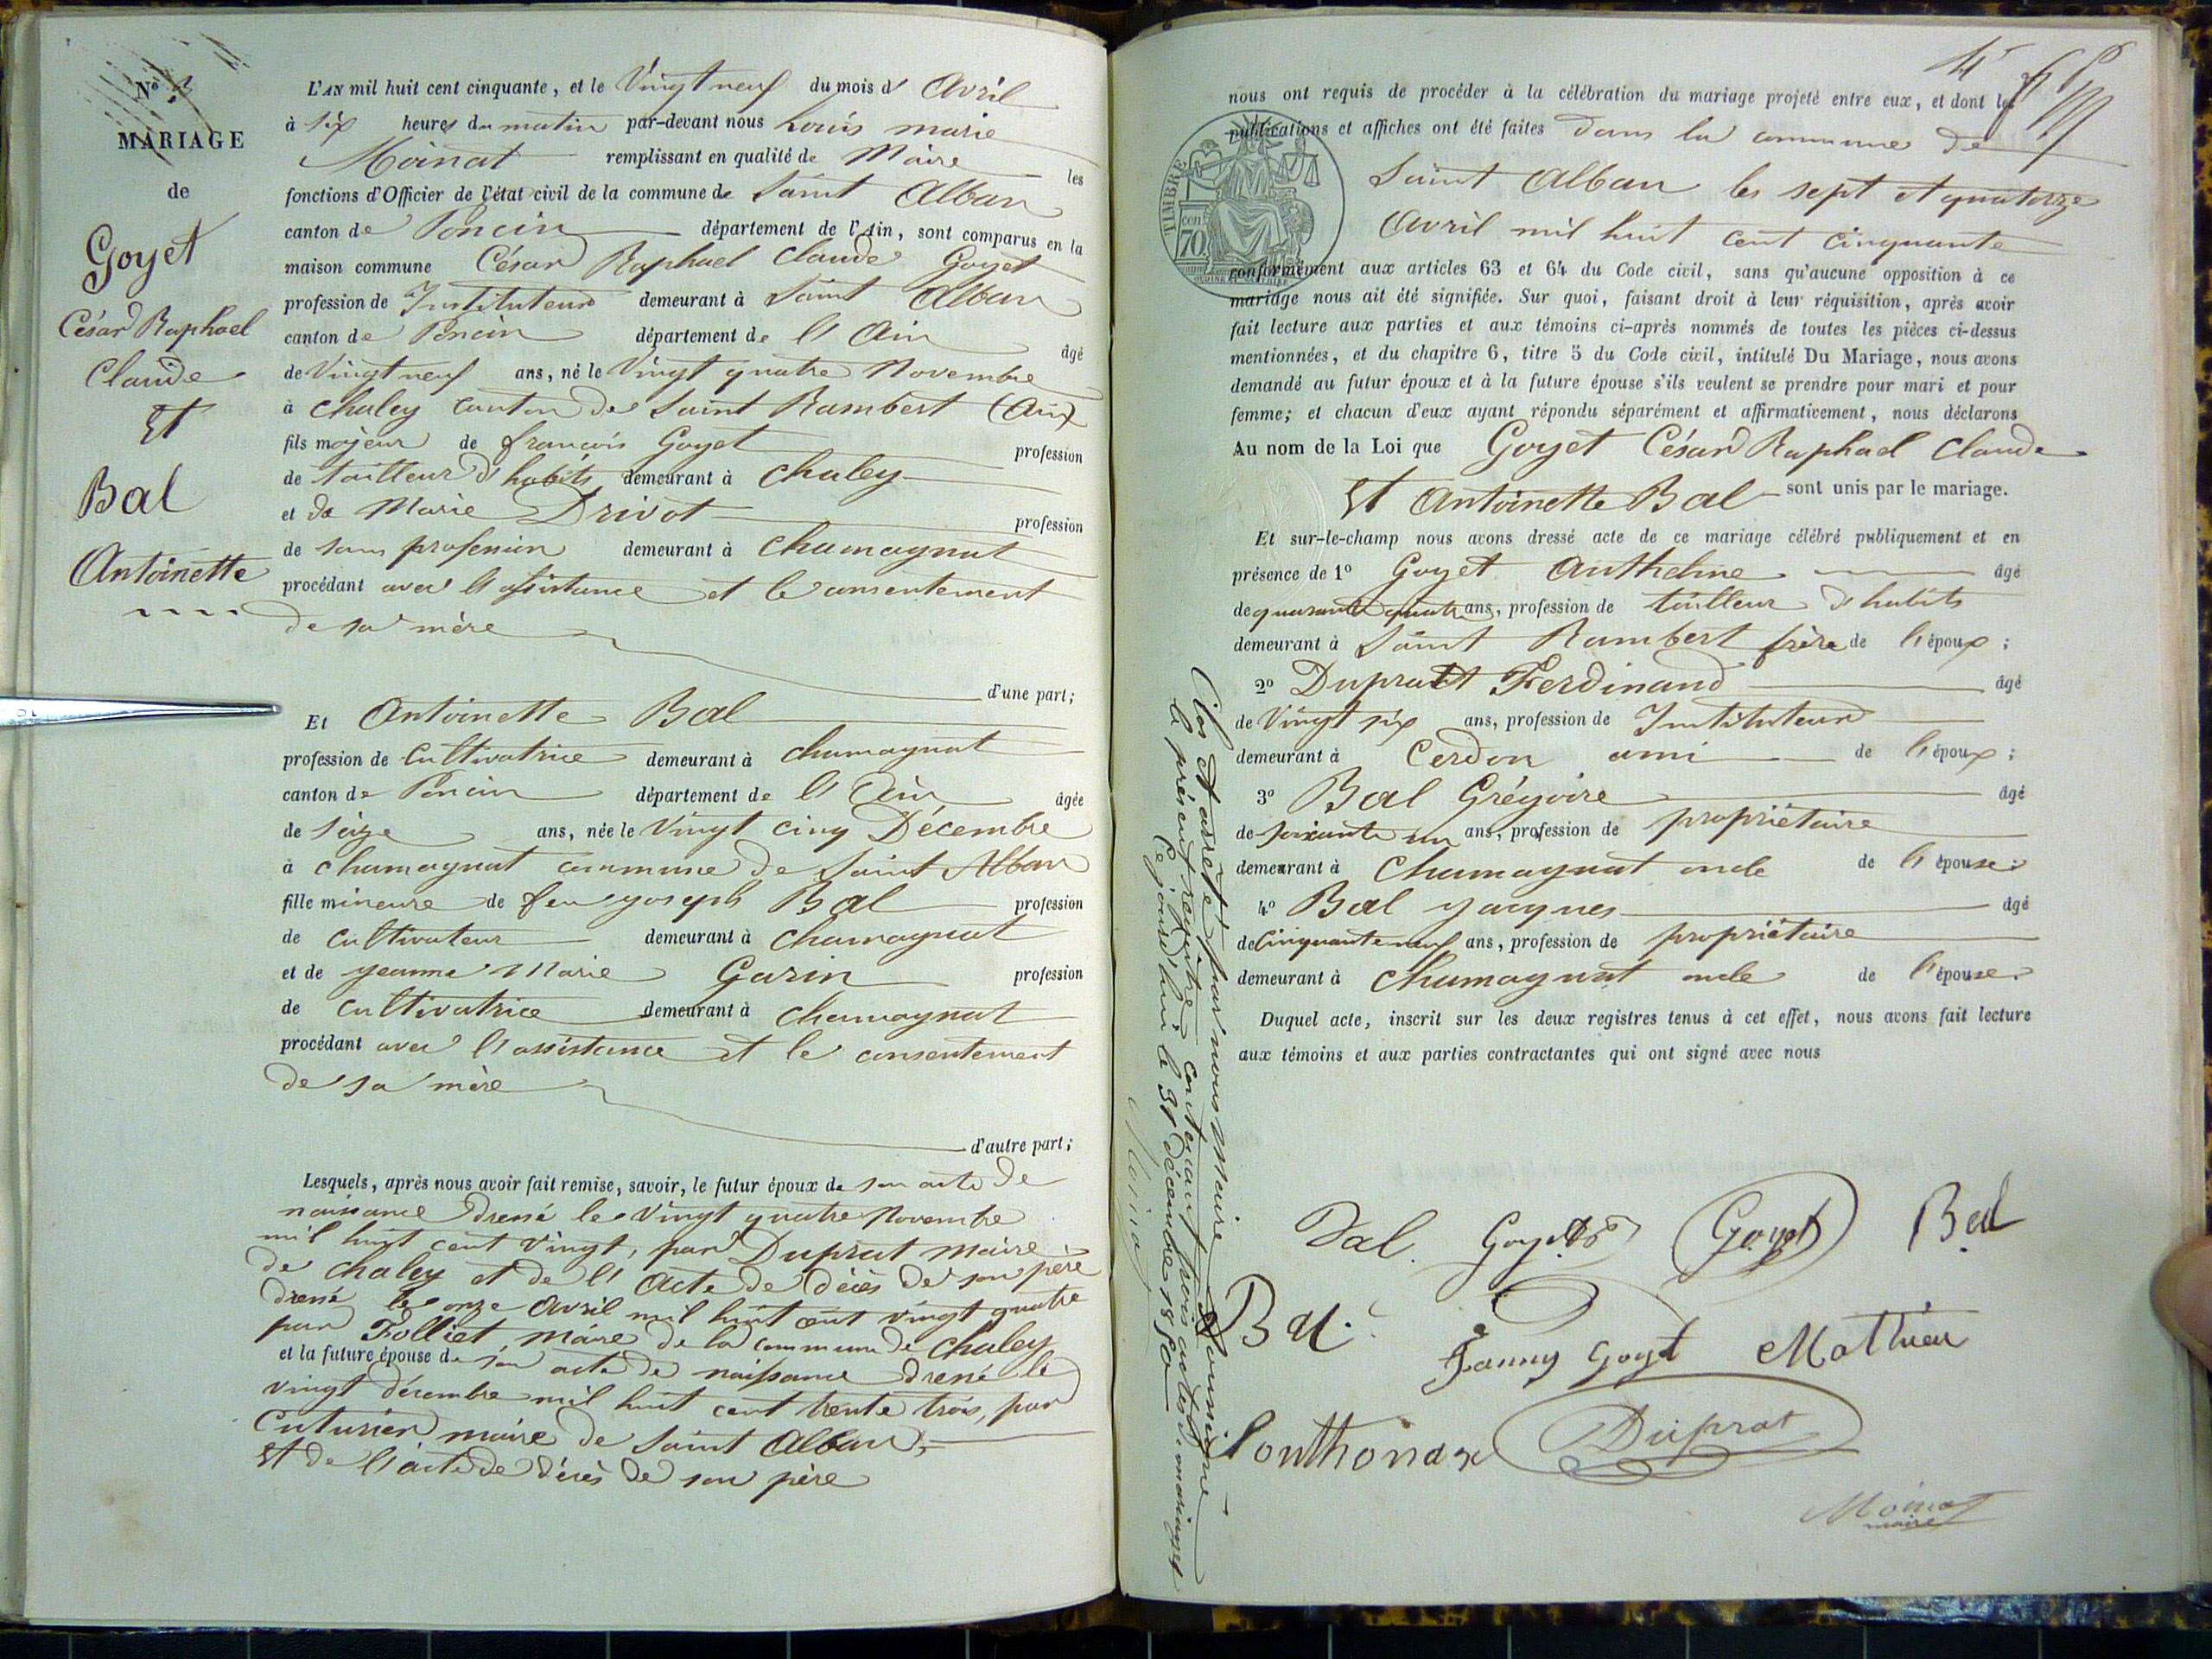 N° 3
MARIAGE
de
Goyet
César Raphael
Claude
Et
Bal
Antoinette
L'AN mil huit cent cinquante, et le Vingt neuf du mois d' Avril
à six heures du matin par-devant nous Louis marie
Moinat remplissant en qualité de Maire les
fonctions d'Officier de l'état civil de la commune de Saint Alban
canton de Poncin département de l'Ain, sont comparus en la
maison commune César Raphael Claude Goyet
profession de Instituteur demeurant à Saint Alban
canton de Poncin département de l'Ain âgé
de Vingt neuf ans, né le Vingt quatre Novembre
à Chaley canton de Saint Rambert (Ain)
fils majeur de françois Goyet profession
de tailleur d'habits demeurant à Chaley
et de Marie Drivot profession
de sans profession demeurant à Chamagnat
procédant avec l'assistance et le consentement
de sa mère
d'une part;
Et Antoinette Bal
profession de Cultivatrice demeurant à Chamagnat
canton de Poncin département de l'Ain âgée
de seize ans, née le Vingt cinq Décembre
à Chamagnat commune de Saint Alban
fille mineure de feu yoseph Bal profession
de Cultivateur demeurant à Chamagnat
et de yeanne Marie Garin profession
de Cultivatrice demeurant à Chamagnat
procédant avec l'assistance et le consentement
de sa mère
d'autre part;
Lesquels, après nous avoir fait remise, savoir, le futur époux de son acte de
naissance dressé le Vingt quatre Novembre
mil huit cent vingt, par Duprat maire
de Chaley et de l'acte de décès de son père
dressé le onze Avril mil huit cent vingt quatre
par Folliet, Maire de la commune de Chaley
et la future épouse de son acte de naissance dressé le
vingt décembre mil huit cent trente trois, par
Cuturier maire de Saint Alban,
Et de l'acte de décès de son père
4
nous ont requis de procéder à la célébration du mariage projeté entre eux, et dont les
publications et affiches ont été faites dans la commune de
Saint Alban les sept et quatorze
Avril mil huit cent cinquante
TIMBRE
cen
70
conformément aux articles 63 et 64 du Code civil, sans qu'aucune opposition à ce
mariage nous ait été signifiée. Sur quoi, faisant droit à leur réquisition, après avoir
fait lecture aux parties et aux témoins ci-après nommés de toutes les pièces ci-dessus
mentionnées, et du chapitre 6, titre 5 du Code civil, intitulé Du Mariage, nous avons
demandé au futur époux et à la future épouse s'ils veulent se prendre pour mari et pour
femme; et chacun d'eux ayant répondu séparément et affirmativement, nous déclarons
Au nom de la Loi que Goyet César Raphael Claude
Et Antoinette Bal sont unis par le mariage.
Et sur-le-champ nous avons dressé acte de ce mariage célébré publiquement et en
présence de 1° Goyet Anthelme âgé
de quarante quatre ans, profession de tailleur d'habits
demeurant à Saint Rambert frère de l'époux;
2° Duprat Ferdinand âgé
de Vingt six ans, profession de Instituteur
demeurant à Cerdon ami de l'époux;
3° Bal Grégoire âgé
de soixante un ans, profession de propriétaire
demeurant à Chamagnat oncle de l'épouse;
4° Bal yacques âgé
de Cinquante neuf ans, profession de propriétaire
demeurant à Chamagnat oncle de l'épouse.
Duquel acte, inscrit sur les deux registres tenus à cet effet, nous avons fait lecture
aux témoins et aux parties contractantes qui ont signé avec nous
Clos et arrêté par nous Maire soussigné
le présent registre contenant trois actes de mariages
Ce jourd'hui le 31 décembre 1850
Moinat
Bal Goyet Goyet Bal
Bal
Fanny Goyet Mathieu
Ponthonax Duprat
Moinat
maire